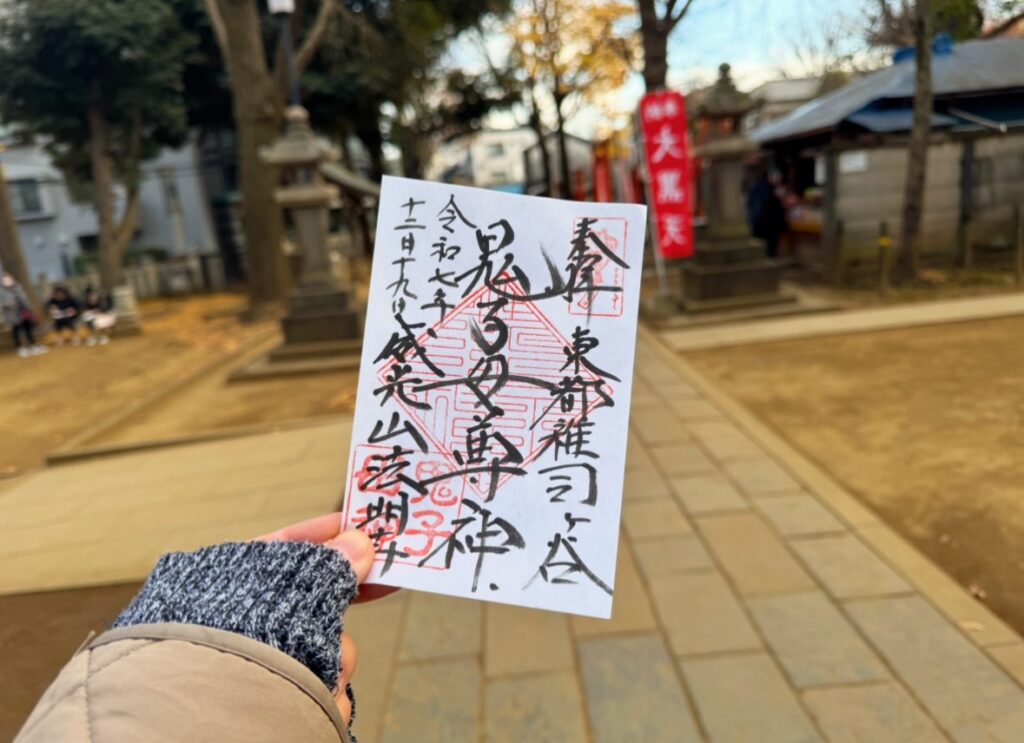 奉拝
東都雑司ヶ谷
鬼子母尊神
令和七年
十二月十九日
威光山法明寺
鬼子
母神
大黒天